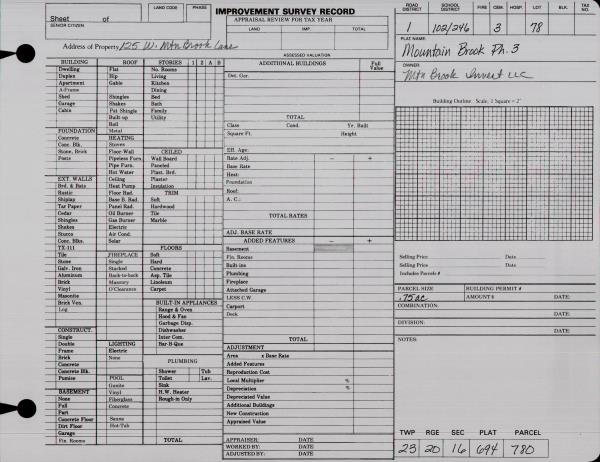 IMPROVEMENT SURVEY RECORD
Sheet of
SENIOR CITIZEN
LAND CODE
PHASE
APPRAISAL REVIEW FOR TAX YEAR
LAND IMP. TOTAL
ROAD DISTRICT SCHOOL DISTRICT FIRE CEM. HOSP. LOT BLK. TAX NO.
1 102/246 3 78
Address of Property 125 W. Mtn Brook Lane
ASSESSED VALUATION
PLAT NAME
Mountain Brook Ph. 3
OWNER
Mtn Brook Invest LLC
Building Outline. Scale, 1 Square = 2'
BUILDING ROOF STORIES 1 2 A B
Dwelling Flat No. Rooms
Duplex Hip Living
Apartment Gable Kitchen
A-Frame Dining
Shed Shingles Bed
Garage Shakes Bath
Cabin Pat Shingle Family
Built-up Utility
Roll
FOUNDATION Metal
Concrete HEATING CEILED
Conc. Blk. Stoves
Stone, Brick Floor-Wall Wall Board
Posts Pipeless Furn. Paneled
Pipe Furn. Plast. Brd.
Hot Water Plaster
EXT. WALLS Ceiling Insulation
Brd. & Bats Heat Pump TRIM
Rustic Floor Rad. Soft
Shiplap Base B. Rad. Hardwood
Tar Paper Panel Rad. Tile
Cedar Oil Burner Marble
Shingles Gas Burner
Shakes Electric
Stucco Air Cond.
Conc. Blks. Solar FLOORS
TX-111
Tile FIREPLACE Soft
Stone Single Hard
Galv. Iron Stacked Concrete
Aluminum Back-to-back Asp. Tile
Brick Masonry Linoleum
Vinyl O'Clearance Carpet
Masonite
Brick Ven. BUILT-IN APPLIANCES
Log Range & Oven
Hood & Fan
Garbage Disp.
CONSTRUCT. Dishwasher
Single Inter Com.
Double LIGHTING Bar-B-Que
Frame Electric
Brick None PLUMBING
Concrete
Concrete Blk. Shower Tub
Pumice POOL Toilet Lav.
Gunite Sink
BASEMENT Vinyl H.W. Heater
None Fiberglass Rough-in Only
Full Concrete
Part
Concrete Floor Sauna
Dirt Floor Hot-Tub
Garage
Fin. Rooms TOTAL
ADDITIONAL BUILDINGS Full Value
Det. Gar.
TOTAL
Class Cond. Yr. Built
Square Ft. Height
Eff. Age:
Rate Adj. - +
Base Rate
Heat:
Foundation
Roof:
A. C.:
TOTAL RATES
ADJ. BASE RATE
ADDED FEATURES - +
Basement
Fin. Rooms
Built-ins
Plumbing
Fireplace
Attached Garage
LESS C.W.
Carport
Deck
TOTAL
ADJUSTMENT
Area x Base Rate
Added Features
Reproduction Cost
Local Multiplier %
Depreciation %
Depreciated Value
Additional Buildings
New Construction
Appraised Value
APPRAISER: DATE
WORKED BY: DATE
ADJUSTED BY: DATE
Selling Price Date
Selling Price Date
Includes Parcels #
PARCEL SIZE BUILDING PERMIT #
.75 ac AMOUNT $ DATE:
COMBINATION:
DATE:
DIVISION:
DATE:
NOTES:
TWP RGE SEC PLAT PARCEL
23 20 16 694 780